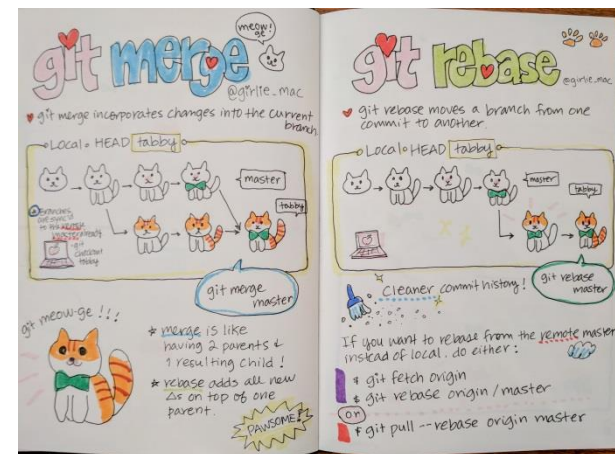 meow!
ge
git merge
@girlie_mac
git merge incorporates changes into the current
branch.
Local HEAD tabby
master
tabby
Branches
to the
already
git
checkout
tabby
git merge
master
git meow-ge!!!
* merge is like
having 2 parents &
1 resulting child!
* rebase adds all new
Δs on top of one
parent.
PAWSOME!
git rebase
@girlie_mac
git rebase moves a branch from one
commit to another.
Local HEAD tabby
master
tabby
git rebase
master
Cleaner commit history!
If you want to rebase from the remote master
instead of local, do either:
$ git fetch origin
$ git rebase origin/master
or
$ git pull --rebase origin master